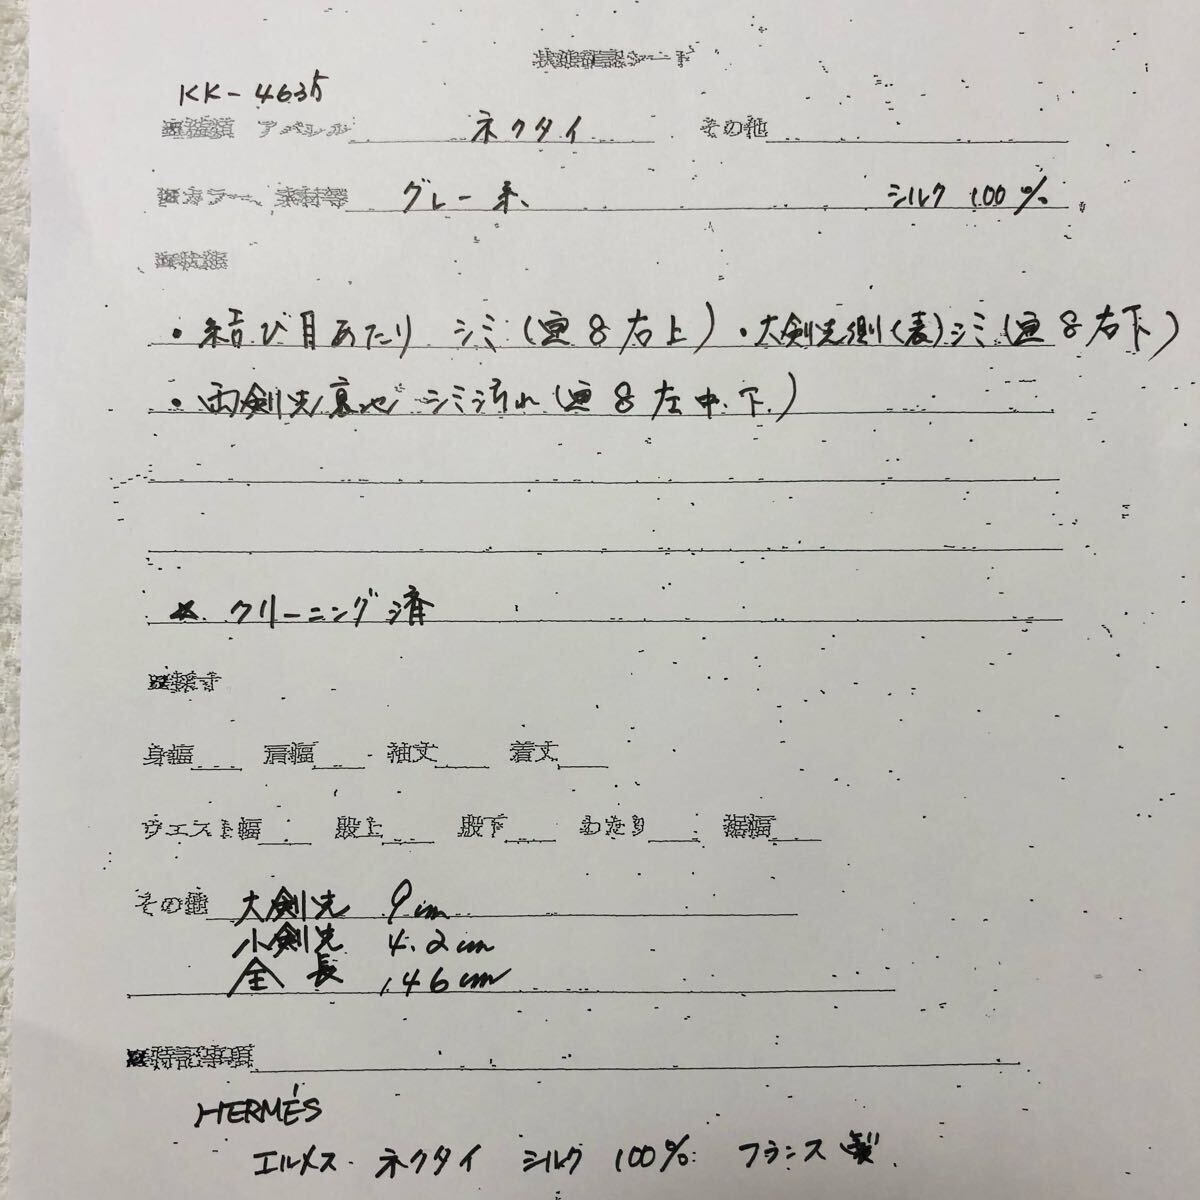 状態確認シート
KK-4635
■種類 アパレル ネクタイ その他
■カラー、素材等 グレー系、 シルク 100%
■状態
・結び目あたり シミ(画8右上)・大剣先側(表)シミ(画8右下)
・両剣先裏地 シミ汚れ(画8左中.下.)
☆. クリーニング済
■採寸
身幅 肩幅 袖丈 着丈
ウエスト幅 股上 股下 わたり 裾幅
その他 大剣先 9cm
小剣先 4.2cm
全長 146cm
■特記事項
HERMÉS
エルメス. ネクタイ シルク 100% フランス製.